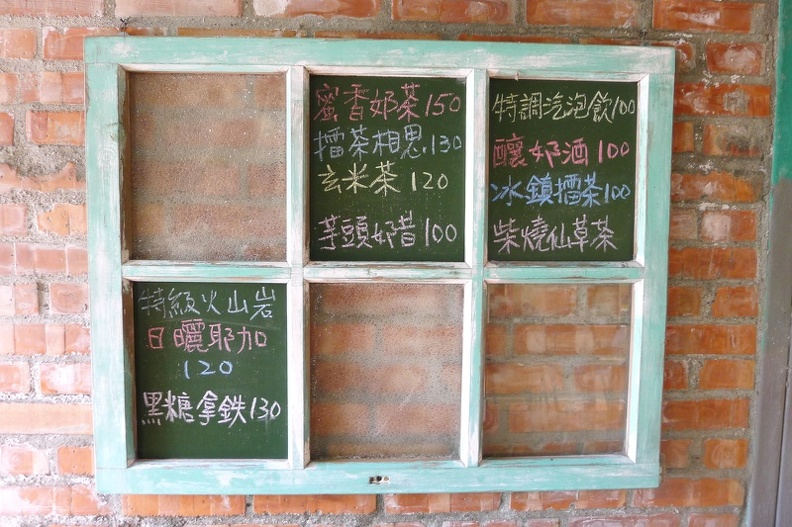 蜜香奶茶150
擂茶相思130
玄米茶120
芋頭奶昔100
特調汽泡飲100
釀奶酒100
冰鎮擂茶100
柴燒仙草茶
特級火山岩
日曬耶加
120
黑糖拿鐵130